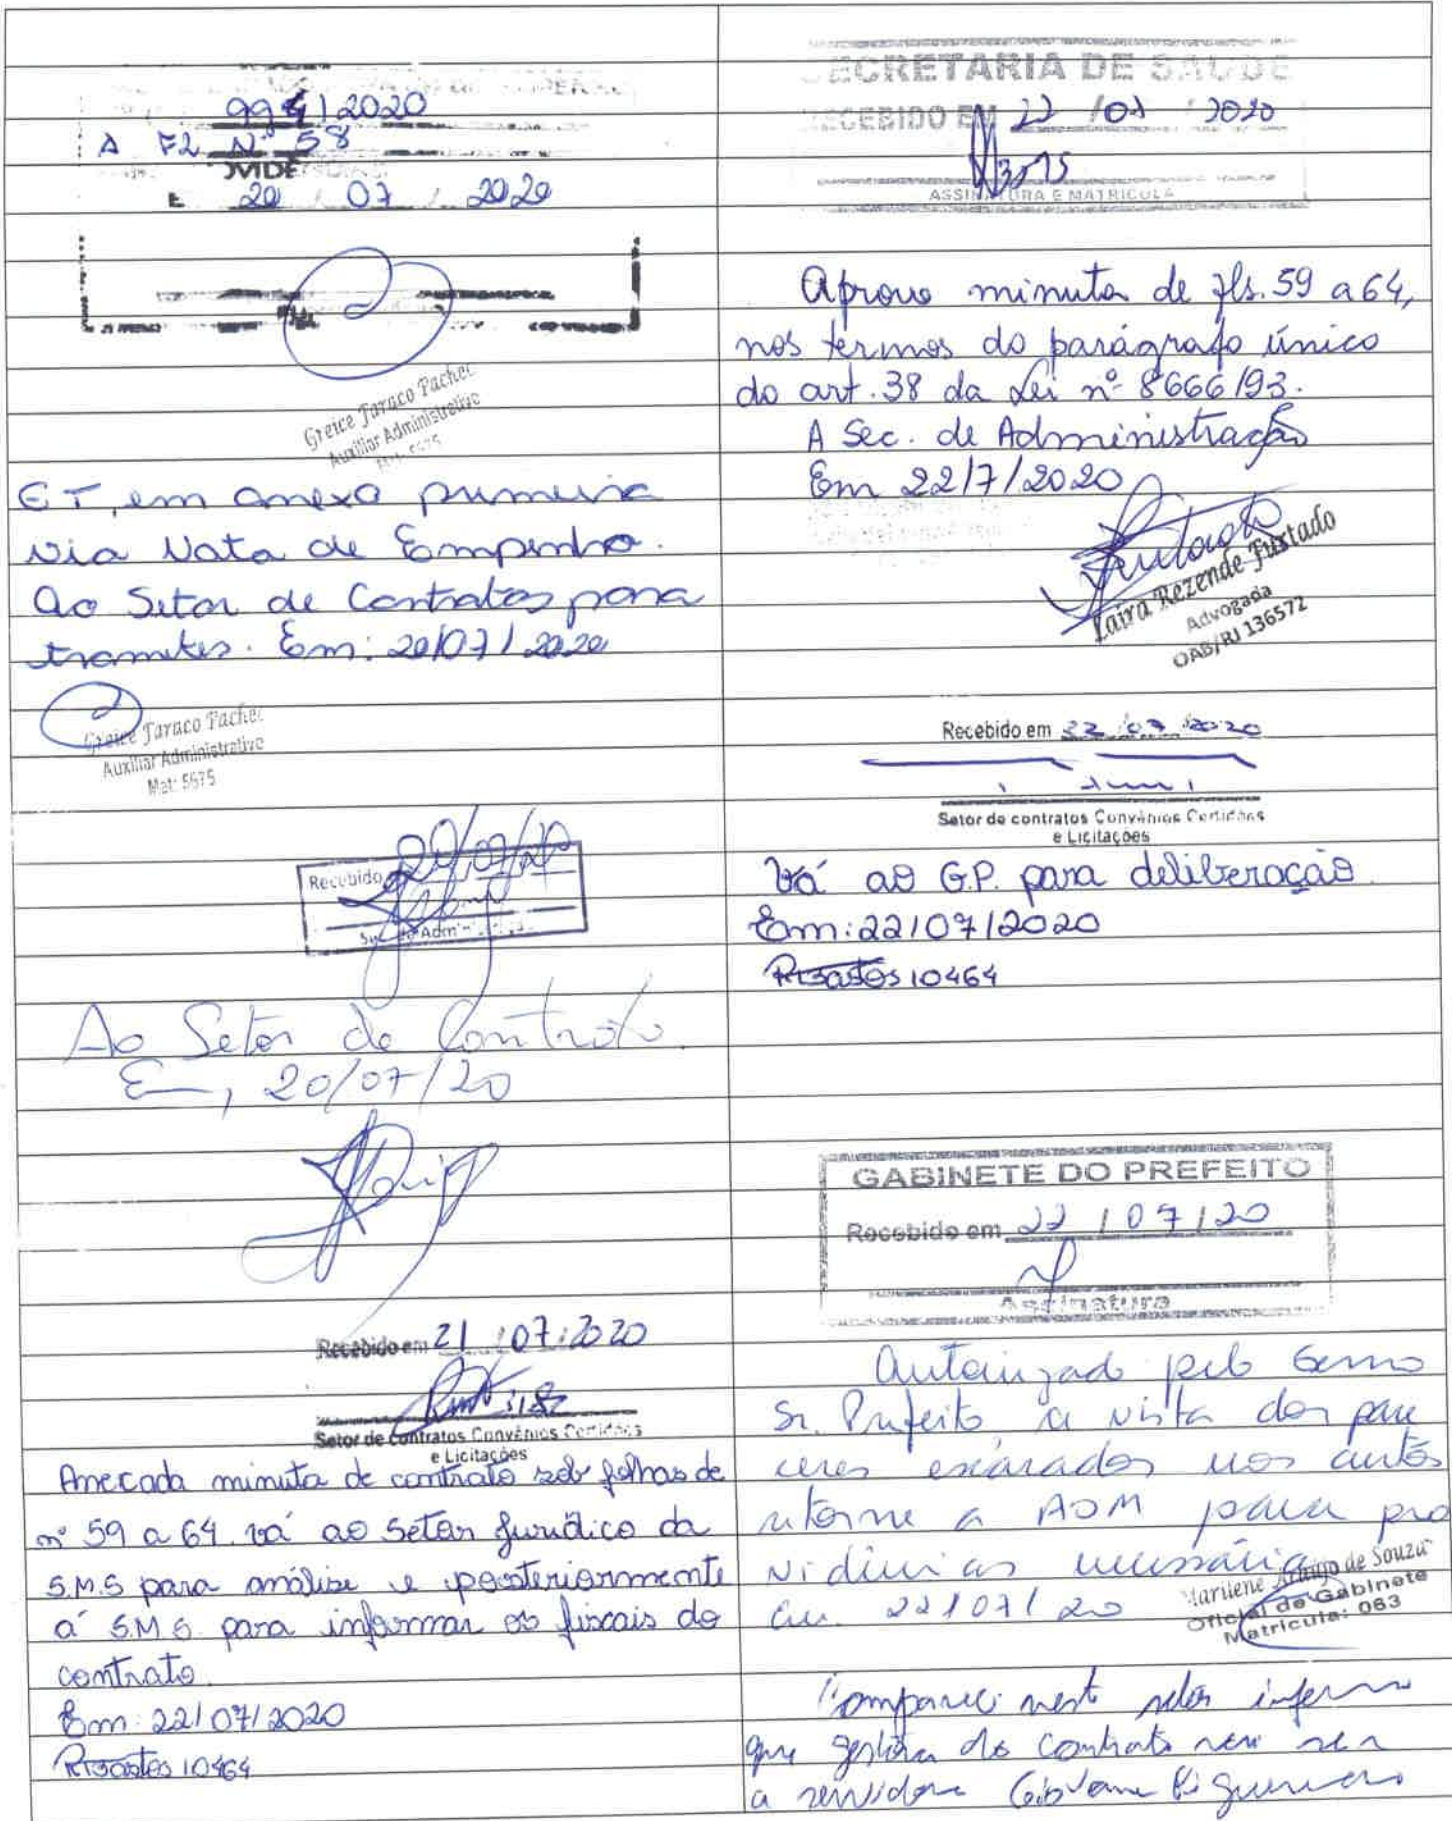 994/2020
A FL Nº 58
20 07 2020
Greice Taraco Pachec
Auxiliar Administrativo
Mat: 5675
CI, em anexo primeira
via Nota de Empenho.
Ao Setor de Contratos para
tramites. Em: 20/07/2020
Greice Taraco Pachec
Auxiliar Administrativo
Mat: 5675
Recebido 20/07/20
Ao Setor de Contrato.
Em, 20/07/20
Recebido em 21/07/2020
Setor de contratos Convênios Certidões
e Licitações
Anexada minuta de contrato sob folhas de
nº 59 a 64. vá ao Setor Jurídico da
S.M.S para análise e posteriormente
á S.M.S para informar os fiscais do
contrato.
Em: 22/07/2020
10464
SECRETARIA DE SAUDE
RECEBIDO EM 22 /07 / 2020
ASSINATURA E MATRICULA
Aprovo minuta de fls. 59 a 64,
nos termos do parágrafo único
do art. 38 da Lei nº 8666/93.
A Sec. de Administração
Em 22/7/2020
Laira Rezende Furtado
Advogada
OAB/RJ 136572
Recebido em 22/07/2020
Setor de contratos Convênios Certidões
e Licitações
Vá ao G.P. para deliberação.
Em: 22/07/2020
10464
GABINETE DO PREFEITO
Recebido em 22/07/20
Assinatura
Autorizado pelo Exmo
Sr. Prefeito, a vista dos pare
ceres exarados nos autos
retorne a ADM para pro
vidências necessárias
em 22/07/20
Marilene Araujo de Souza
Oficial de Gabinete
Matrícula: 063
Compareci neste setor informo
que gestora do contrato será
a servidora